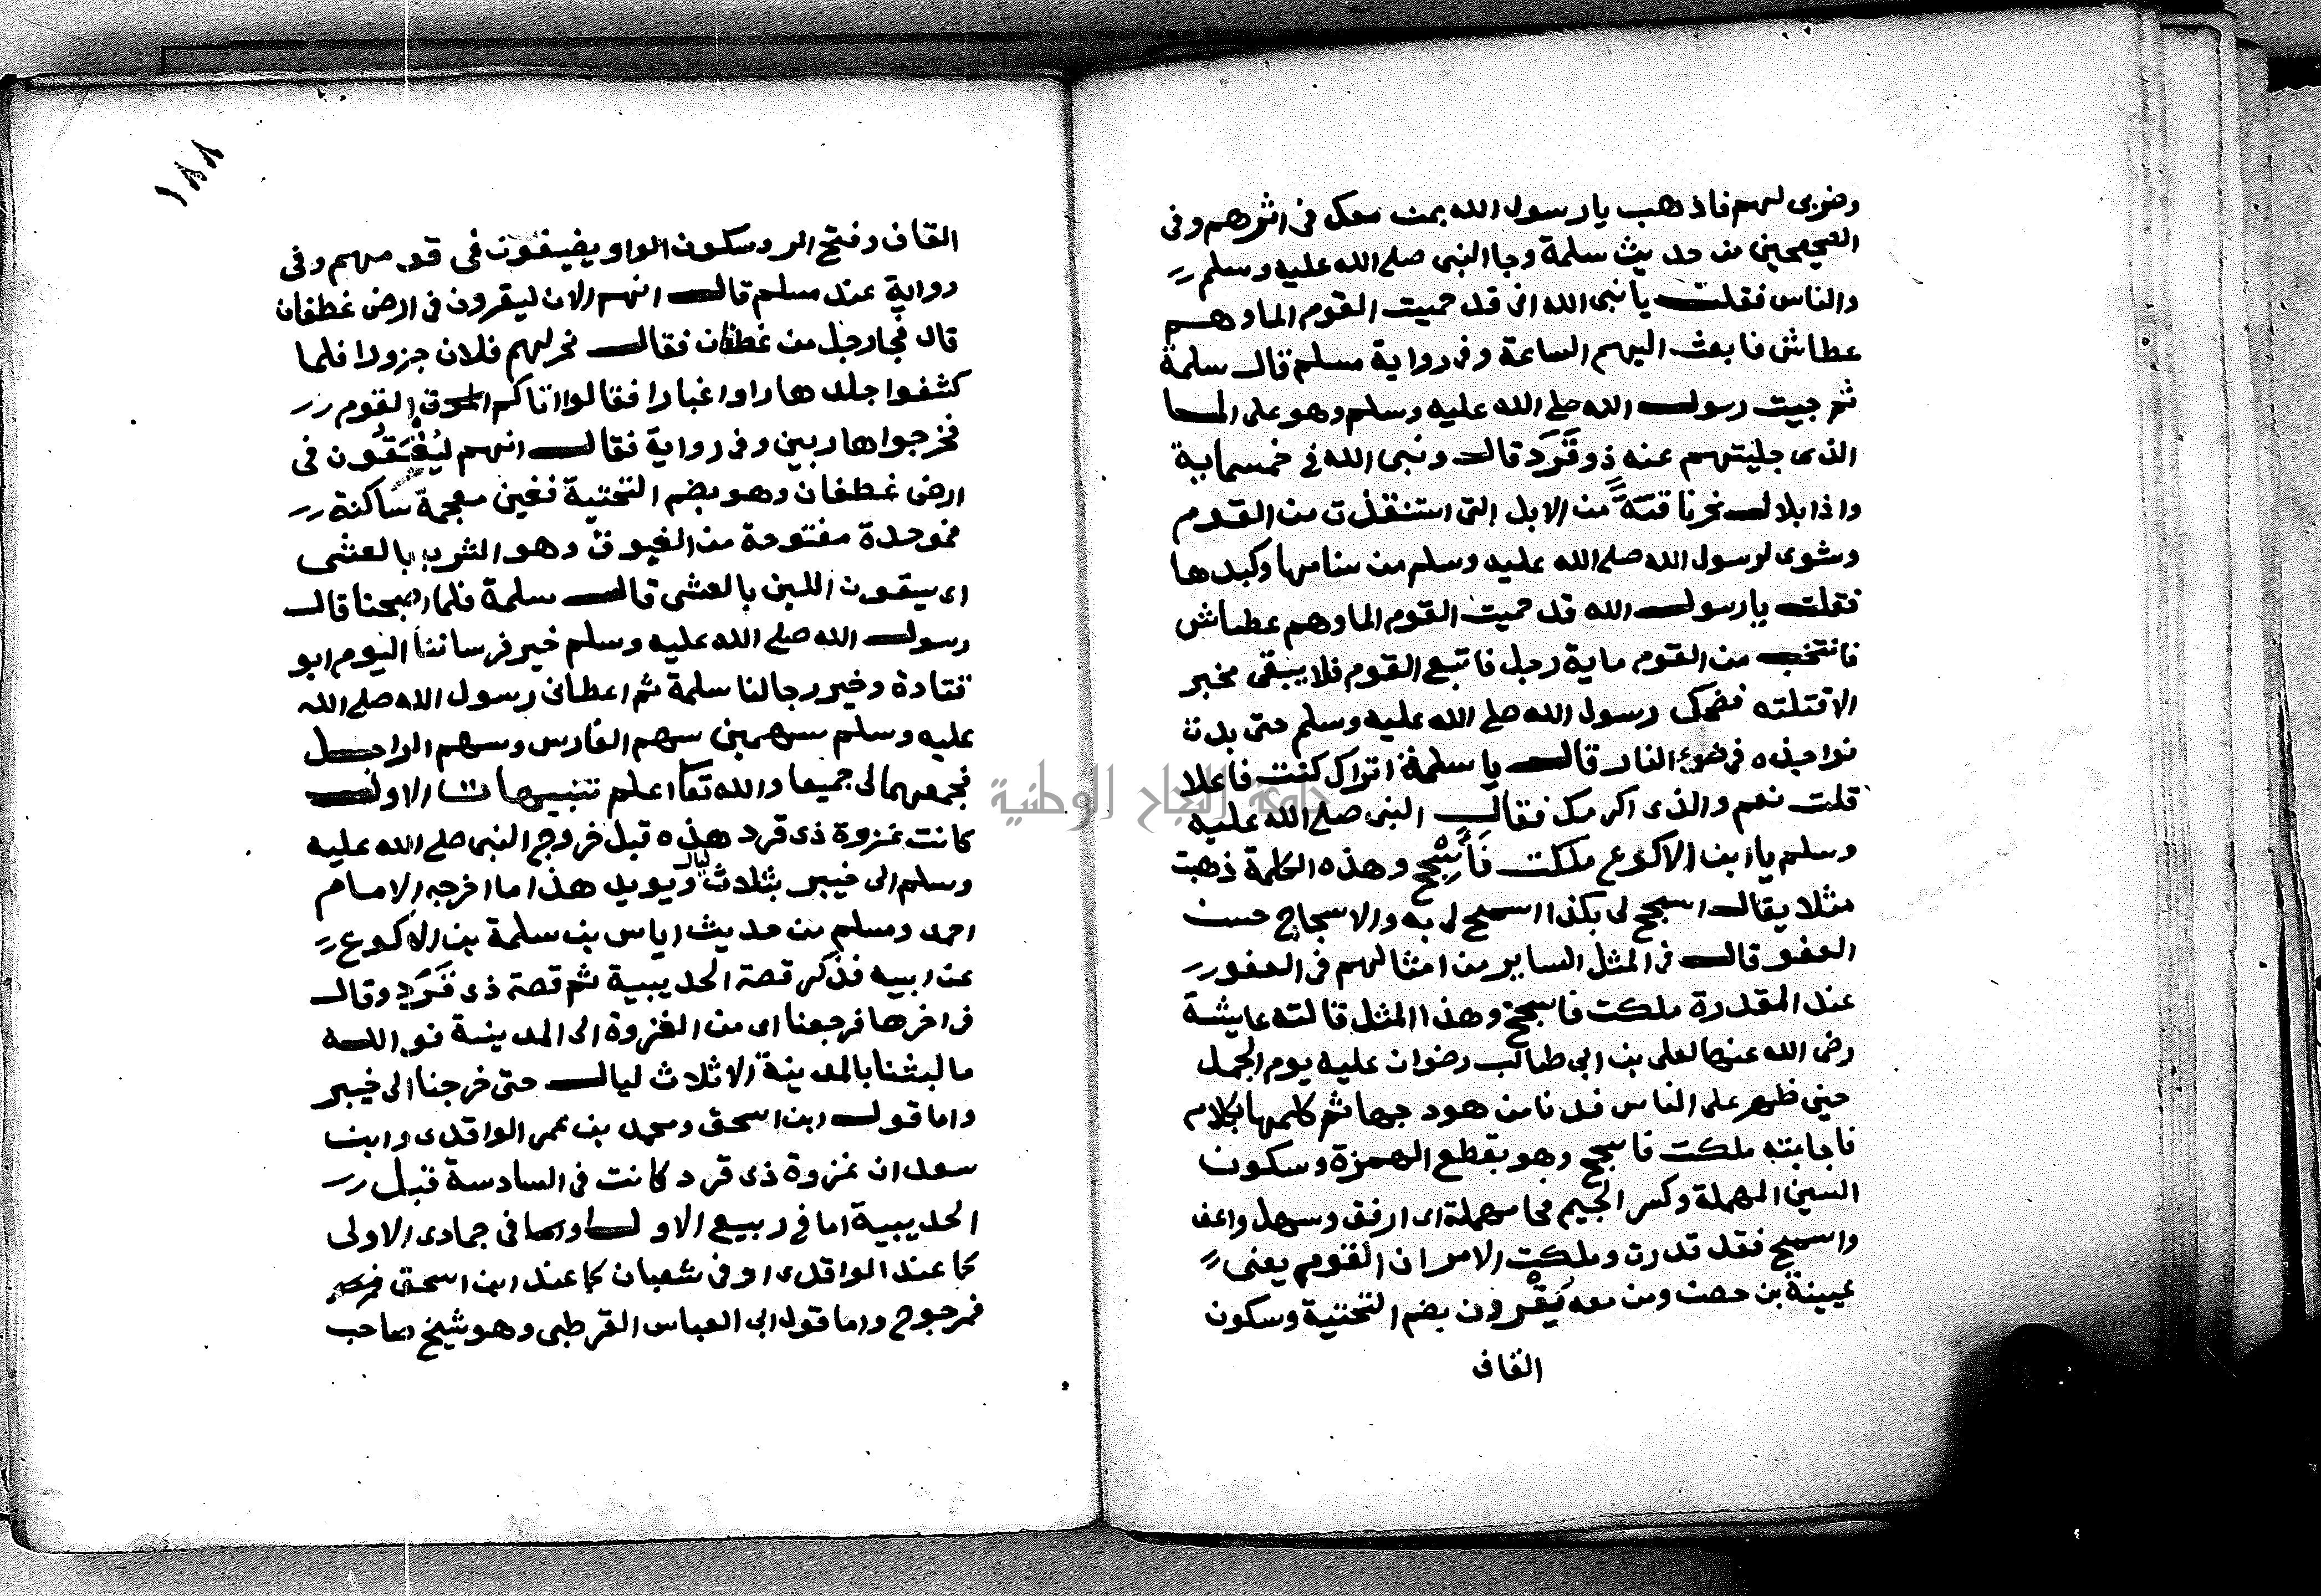 وضربى لهم فاذهب يا رسول الله بمن معك فى اثرهم وفى
الصحيحين من حديث سلمة وجا النبى صلى الله عليه وسلم
والناس فقلت يا نبى الله انى قد حميت القوم الما وهم
عطاش فابعث اليهم الساعة وفى رواية مسلم قال سلمة
ثم جيت رسول الله صلى الله عليه وسلم وهو على الما
الذى جليتهم عنه ذو قَرَد قال ونبى الله فى خمسماية
واذا بلال نحر ناقة من الابل التى استنقذت من القوم
وشوى لرسول الله صلى الله عليه وسلم من سنامها وكبدها
فقلت يا رسول الله قد حميت القوم الما وهم عطاش
فانتخب من القوم ماية رجل فاتبع القوم فلا يبقى مخبر
الا قتلته فضحك رسول الله صلى الله عليه وسلم حتى بدت
نواجذه فى ضوء النار قال يا سلمة اتراك كنت فاعلا
قلت نعم والذى اكرمك فقال النبى صلى الله عليه
وسلم يا ابن الاكوع ملكت فَأَسْجِح وهذه الكلمة ذهبت
مثلا يقال اسجح لى بكذا اسمح لى به والاسجاح حسن
العفو قال فى المثل الساير من امثالهم فى العفو
عند المقدرة ملكت فاسجح وهذا المثل قالته عايشة
رضى الله عنها لعلى بن ابى طالب رضوان عليه يوم الجمل
حين ظهر على الناس فدنا من هودجها ثم كلمها بكلام
فاجابته ملكت فاسجح وهو بقطع الهمزة وسكون
السين المهملة وكسر الجيم فحا مهملة اى ارفق وسهل واعف
واسمح فقد قدرت وملكت الامر ان القوم يعنى
عيينة بن حصن ومن معه يُقْرون بضم التحتية وسكون
القاف
١٨٨
القاف وفتح الر وسكون الواو يضيفون فى قومهم وفى
رواية عند مسلم قال انهم الان ليقرون فى ارض غطفان
قال فجا رجل من غطفان فقال نحر لهم فلان جزورا فلما
كشفوا جلدها راوا غبارا فقالوا اتاكم القوم
فخرجوا هاربين وفى رواية فقال انهم ليُغْبَقُون فى
ارض غطفان وهو بضم التحتية فغين معجمة ساكنة
فموحدة مفتوحة من الغبوق وهو الشرب بالعشى
اى يسقون اللبن بالعشى قال سلمة فلما اصبحنا قال
رسول الله صلى الله عليه وسلم خير فرساننا اليوم ابو
قتادة وخير رجالنا سلمة ثم اعطانى رسول الله صلى الله
عليه وسلم سهمين سهم الفارس وسهم الراجل
فجمعهما لى جميعا والله تعا اعلم تنبيهات الاول
كانت غزوة ذى قرد هذه قبل خروج النبى صلى الله عليه
وسلم الى خيبر بثلاث ليال ويويد هذا ما اخرجه الامام
احمد ومسلم من حديث اياس بن سلمة بن الاكوع
عن ابيه فذكر قصة الحديبية ثم قصة ذى قَرَد وقال
فى اخرها فرجعنا اى من الغزوة الى المدينة فو الله
ما لبثنا بالمدينة الا ثلاث ليال حتى خرجنا الى خيبر
واما قول ابن اسحق ومحمد بن عمر الواقدى وابن
سعد ان غزوة ذى قرد كانت فى السادسة قبل
الحديبية اما فى ربيع الاول واما فى جمادى الاولى
كما عند الواقدى او فى شعبان كما عند ابن اسحق
فمرجوح واما قول ابى العباس القرطبى وهو شيخ صاحب
جامعة النجاح الوطنية